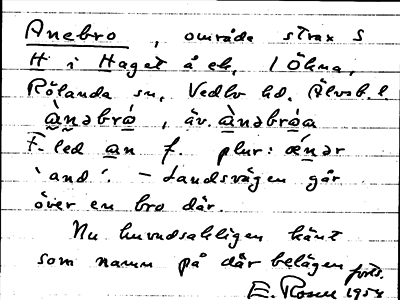 Anebro, område strax S
H i Haget å ek. 1 Ökna,
Rölanda sn, Vedbo hd. Älvsb. l.
ànəbró, äv. ànəbróa
F-led an f. plur: ǽnər
'and'. - Landsvägen går
över en bro där.
Nu huvudsakligen känt
som namn på där belägen forts.
E. Rosell 1954